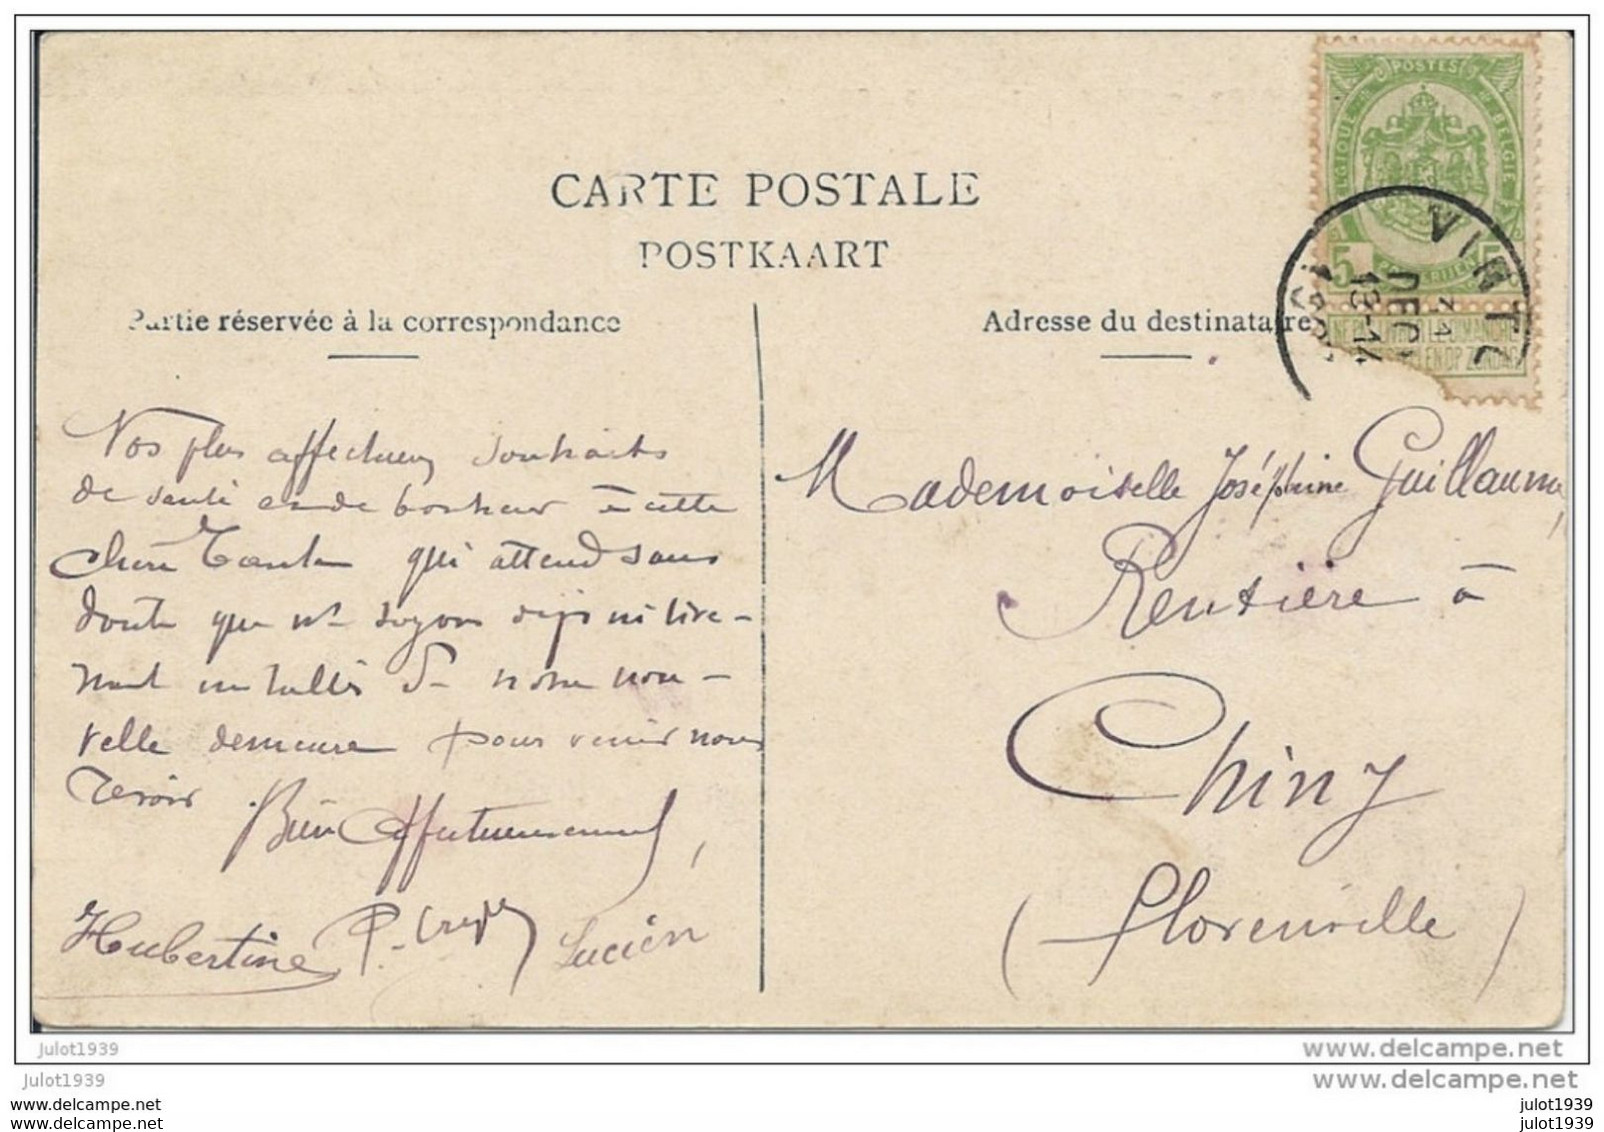 CARTE POSTALE
POSTKAART
Partie réservée à la correspondance
Adresse du destinataire
POSTES
BELGIQUE BELGIE
5 5
VIRTO
31
DEC
13-14
NE PAS LIVRER LE DIMANCHE
Nos plus affectueux souhaits
de santé et de bonheur à cette
chère Tante qui attend sans
doute que ns soyons déjà
installés ds notre nou-
velle demeure pour venir nous
revoir
Bien affectueusement,
Hubertine P. Lucien
Mademoiselle Joséphine Guillaume,
Rentière à
Chiny
(Florenville)
julot1939
julot1939
julot1939
julot1939
www.delcampe.net
www.delcampe.net
www.delcampe.net
www.delcampe.net
julot1939
julot1939